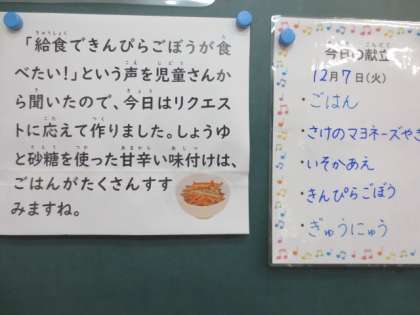 「給食できんぴらごぼうが食
べたい！」という声を児童さんか
ら聞いたので、今日はリクエス
トに応えて作りました。しょうゆ
と砂糖を使った甘辛い味付けは、
ごはんがたくさんすす
みますね。
今日の献立
12月7日(火)
・ごはん
・さけのマヨネーズやき
・いそかあえ
・きんぴらごぼう
・ぎゅうにゅう